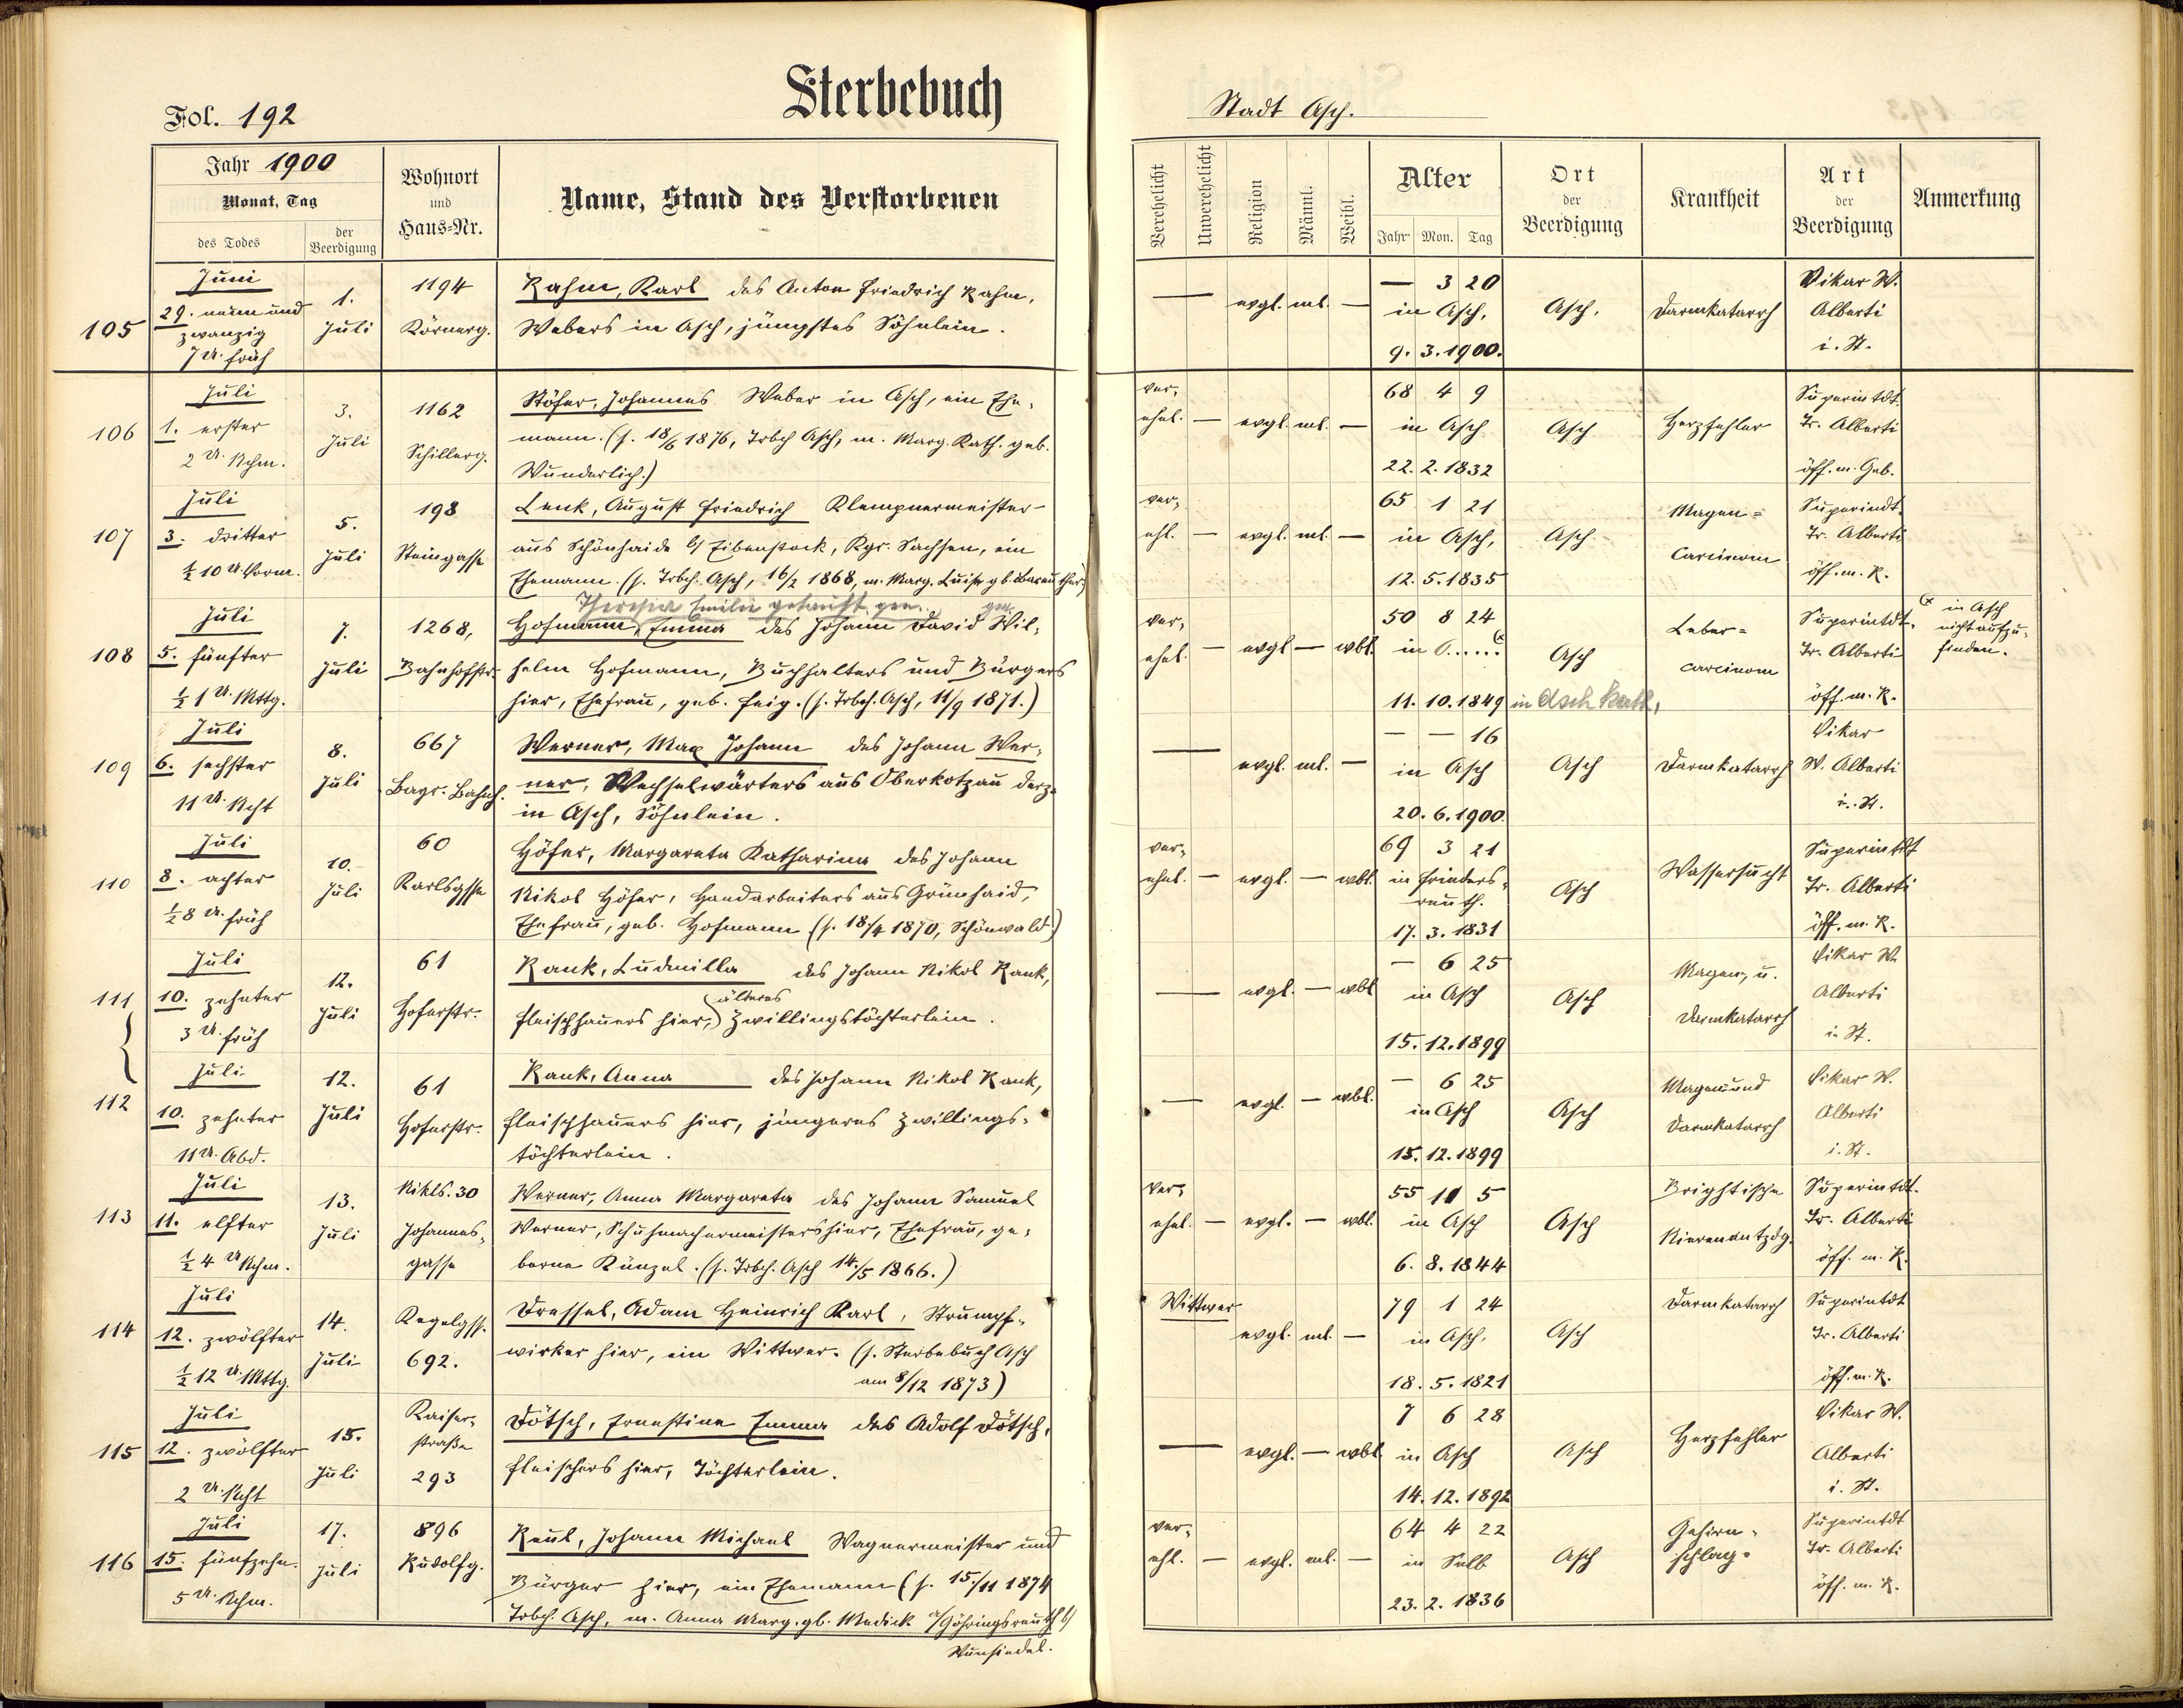 Fol. 192
Sterbebuch
Stadt Asch.
Jahr 1900
Monat, Tag
des Todes
der Beerdigung
Wohnort und Haus-Nr.
Name, Stand des Verstorbenen
Verehelicht
Unverehelicht
Religion
Männl.
Weibl.
Alter
Jahr Mon. Tag
Ort der Beerdigung
Krankheit
Art der Beerdigung
Anmerkung
105
Juni
29. neun und
zwanzig
7 U. früh
1.
Juli
1194
Körnerg.
Rahm, Karl des Anton Friedrich Rahm,
Webers in Asch, jüngstes Söhnlein.
— evgl. ml. —
— 3 20
in Asch,
9. 3. 1900.
Asch.
Darmkatarrh
Vikar W.
Alberti
i. St.
106
Juli
1. erster
2 U. Nchm.
3.
Juli
1162
Schillerg.
Höfer, Johannes Weber in Asch, ein Ehe-
mann. (s. 18/6 1876, Trbch Asch, m. Marg. Kath. geb.
Wunderlich.)
ver-
ehel. — evgl. ml. —
68 4 9
in Asch
22. 2. 1832
Asch
Herzfehler
Superintdt.
Dr. Alberti
öff. m. Geb.
107
Juli
3. dritter
½ 10 U. Vorm.
5.
Juli
198
Steingasse
Lenk, August Friedrich Klempnermeister
aus Schönhaide b/ Eibenstock, Kgr. Sachsen, ein
Ehemann. (s. Trbch. Asch, 16/2 1868, m. Marg. Luise gb. Bareuther)
ver-
ehl. — evgl. ml. —
65 1 21
in Asch,
12. 5. 1835
Asch
Magen-
Carcinom
Superindt.
Dr. Alberti
öff. m. R.
108
Juli
5. fünfter
½ 1 U. Mttg.
7.
Juli
1268,
Bahnhofstr.
Theresia Emilie getauft gen.
Hofmann, Emma des Johann David Wil-
helm Hofmann, Buchhalters und Bürgers
hier, Ehefrau, geb. Feig. (s. Trbch. Asch, 11/9 1871.)
ver-
ehel. — evgl — wbl.
50 8 24
in A.....(x
11. 10. 1849 in Asch kath.
Asch
Leber-
carcinom
Superintdt.
Dr. Alberti
öff. m. R.
(x in Asch
nicht aufzu-
finden.
109
Juli
6. sechster
11 U. Ncht
8.
Juli
667
Bayr. Bahnh.
Werner, Max Johann des Johann Wer-
ner, Wechselwärters aus Oberkotzau derz.
in Asch, Söhnlein.
— evgl. ml. —
— — 16
in Asch
20. 6. 1900.
Asch
Darmkatarrh
Vikar
W. Alberti
i. St.
110
Juli
8. achter
½ 8 U. früh
10.
Juli
60
Karlsgsse
Höfer, Margareta Katharina des Johann
Nikol Höfer, Handarbeiters aus Grünhaid,
Ehefrau, geb. Hofmann (s. 18/4 1870, Schönwald)
ver-
ehel. — evgl. — wbl.
69 3 21
in Frieders-
reuth.
17. 3. 1831
Asch
Wassersucht
Superintdt
Dr. Alberti
öff. m. R.
111
Juli
10. zehnter
3 U. früh
12.
Juli
61
Hoferstr.
Rank, Ludmilla des Johann Nikol Rank,
Fleischhauers hier, (älteres) Zwillingstöchterlein.
— evgl. — wbl
— 6 25
in Asch
15. 12. 1899
Asch
Magen- u.
Darmkatarrh
Vikar W.
Alberti
i. St.
112
Juli
10. zehnter
11 U. Abd.
12.
Juli
61
Hoferstr.
Rank, Anna des Johann Nikol Rank,
Fleischhauers hier, jüngeres Zwillings-
töchterlein.
— evgl. — wbl.
— 6 25
in Asch
15. 12. 1899
Asch
Magen- und
Darmkatarrh
Vikar W.
Alberti
i. St.
113
Juli
11. elfter
½ 4 U Nchm.
13.
Juli
Nikls. 30
Johannes-
gasse
Werner, Anna Margareta des Johann Samuel
Werner, Schuhmachermeisters hier, Ehefrau, ge-
borne Künzel. (s. Trbch. Asch 14/5 1866.)
ver-
ehel. — evgl. — wbl.
55 11 5
in Asch
6. 8. 1844
Asch
Brightische
Nierenentzdg.
Superintdt.
Dr. Alberti
öff. m. R.
114
Juli
12. zwölfter
½ 12 U. Mttg.
14.
Juli
Kegelgss.
692.
Dressel, Adam Heinrich Karl, Strumpf-
wirker hier, ein Wittwer. (s. Sterbebuch Asch
am 8/12 1873)
Wittwer
evgl. ml. —
79 1 24
in Asch.
18. 5. 1821
Asch
Darmkatarrh
Superintdt
Dr. Alberti
öff. m. R.
115
Juli
12. zwölfter
2 U. Ncht
15.
Juli
Kaiser-
straße
293
Dötsch, Ernestine Emma des Adolf Dötsch,
Fleischers hier, Töchterlein.
— evgl. — wbl.
7 6 28
in Asch
14. 12. 1892
Asch
Herzfehler
Vikar W.
Alberti
i. St.
116
Juli
15. fünfzehn.
5 U. Nchm.
17.
Juli
896
Rudolfg.
Reul, Johann Michael Wagnermeister und
Bürger hier, ein Ehemann (s. 15/11 1874
Trbch. Asch, m. Anna Marg. gb. Medick a/ Göhringsreuth b/
Wunsiedel.
ver-
ehl. — evgl. ml. —
64 4 22
in Selb
23. 2. 1836
Asch
Gehirn-
schlag.
Superintdt
Dr. Alberti
öff. m. R.